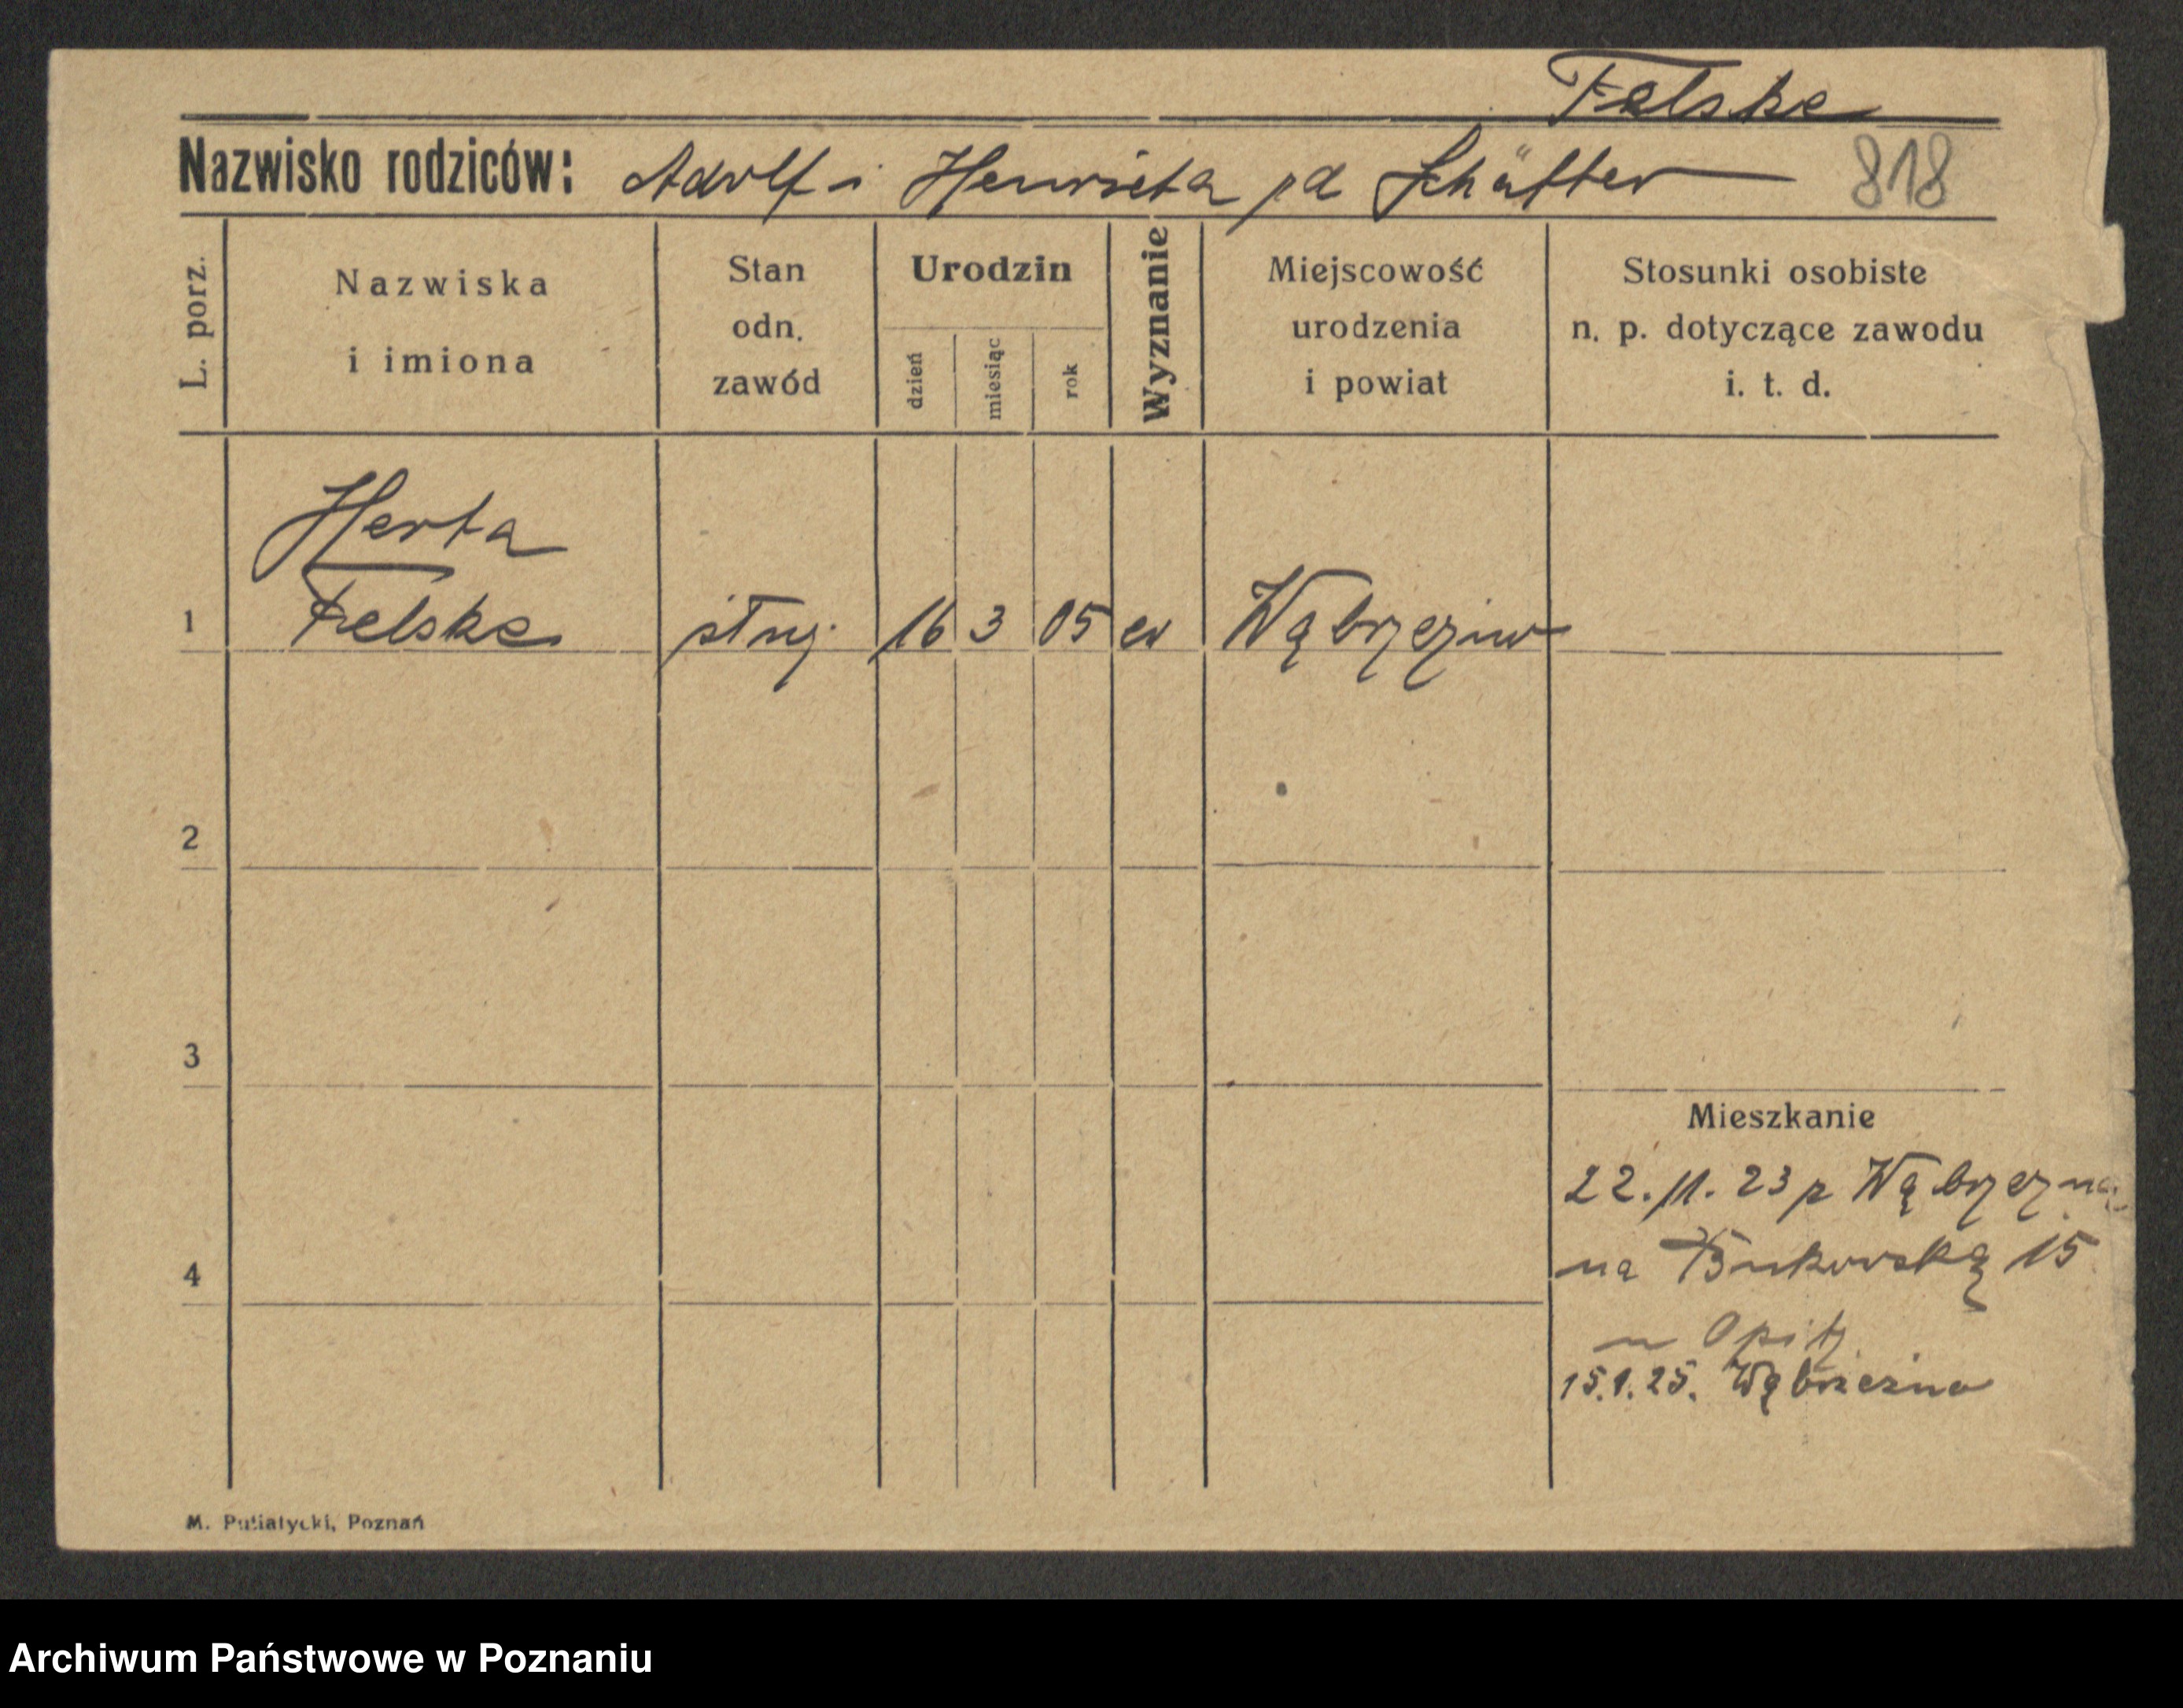 Felske
Nazwisko rodziców: Adolf i Henrieta pd Schäffer 818
L. porz.
Nazwiska
i imiona
Stan
odn.
zawód
Urodzin
dzień
miesiąc
rok
Wyznanie
Miejscowość
urodzenia
i powiat
Stosunki osobiste
n. p. dotyczące zawodu
i. t. d.
Herta
1 Felske służ. 16 3 05 ew Wąbrzeźno
2
3
Mieszkanie
22.11.23 z Wąbrzezna
4 na Bukowską 15
u Opitz
15.1.25. Wąbrzeźno
M. Putiatycki, Poznań
Archiwum Państwowe w Poznaniu